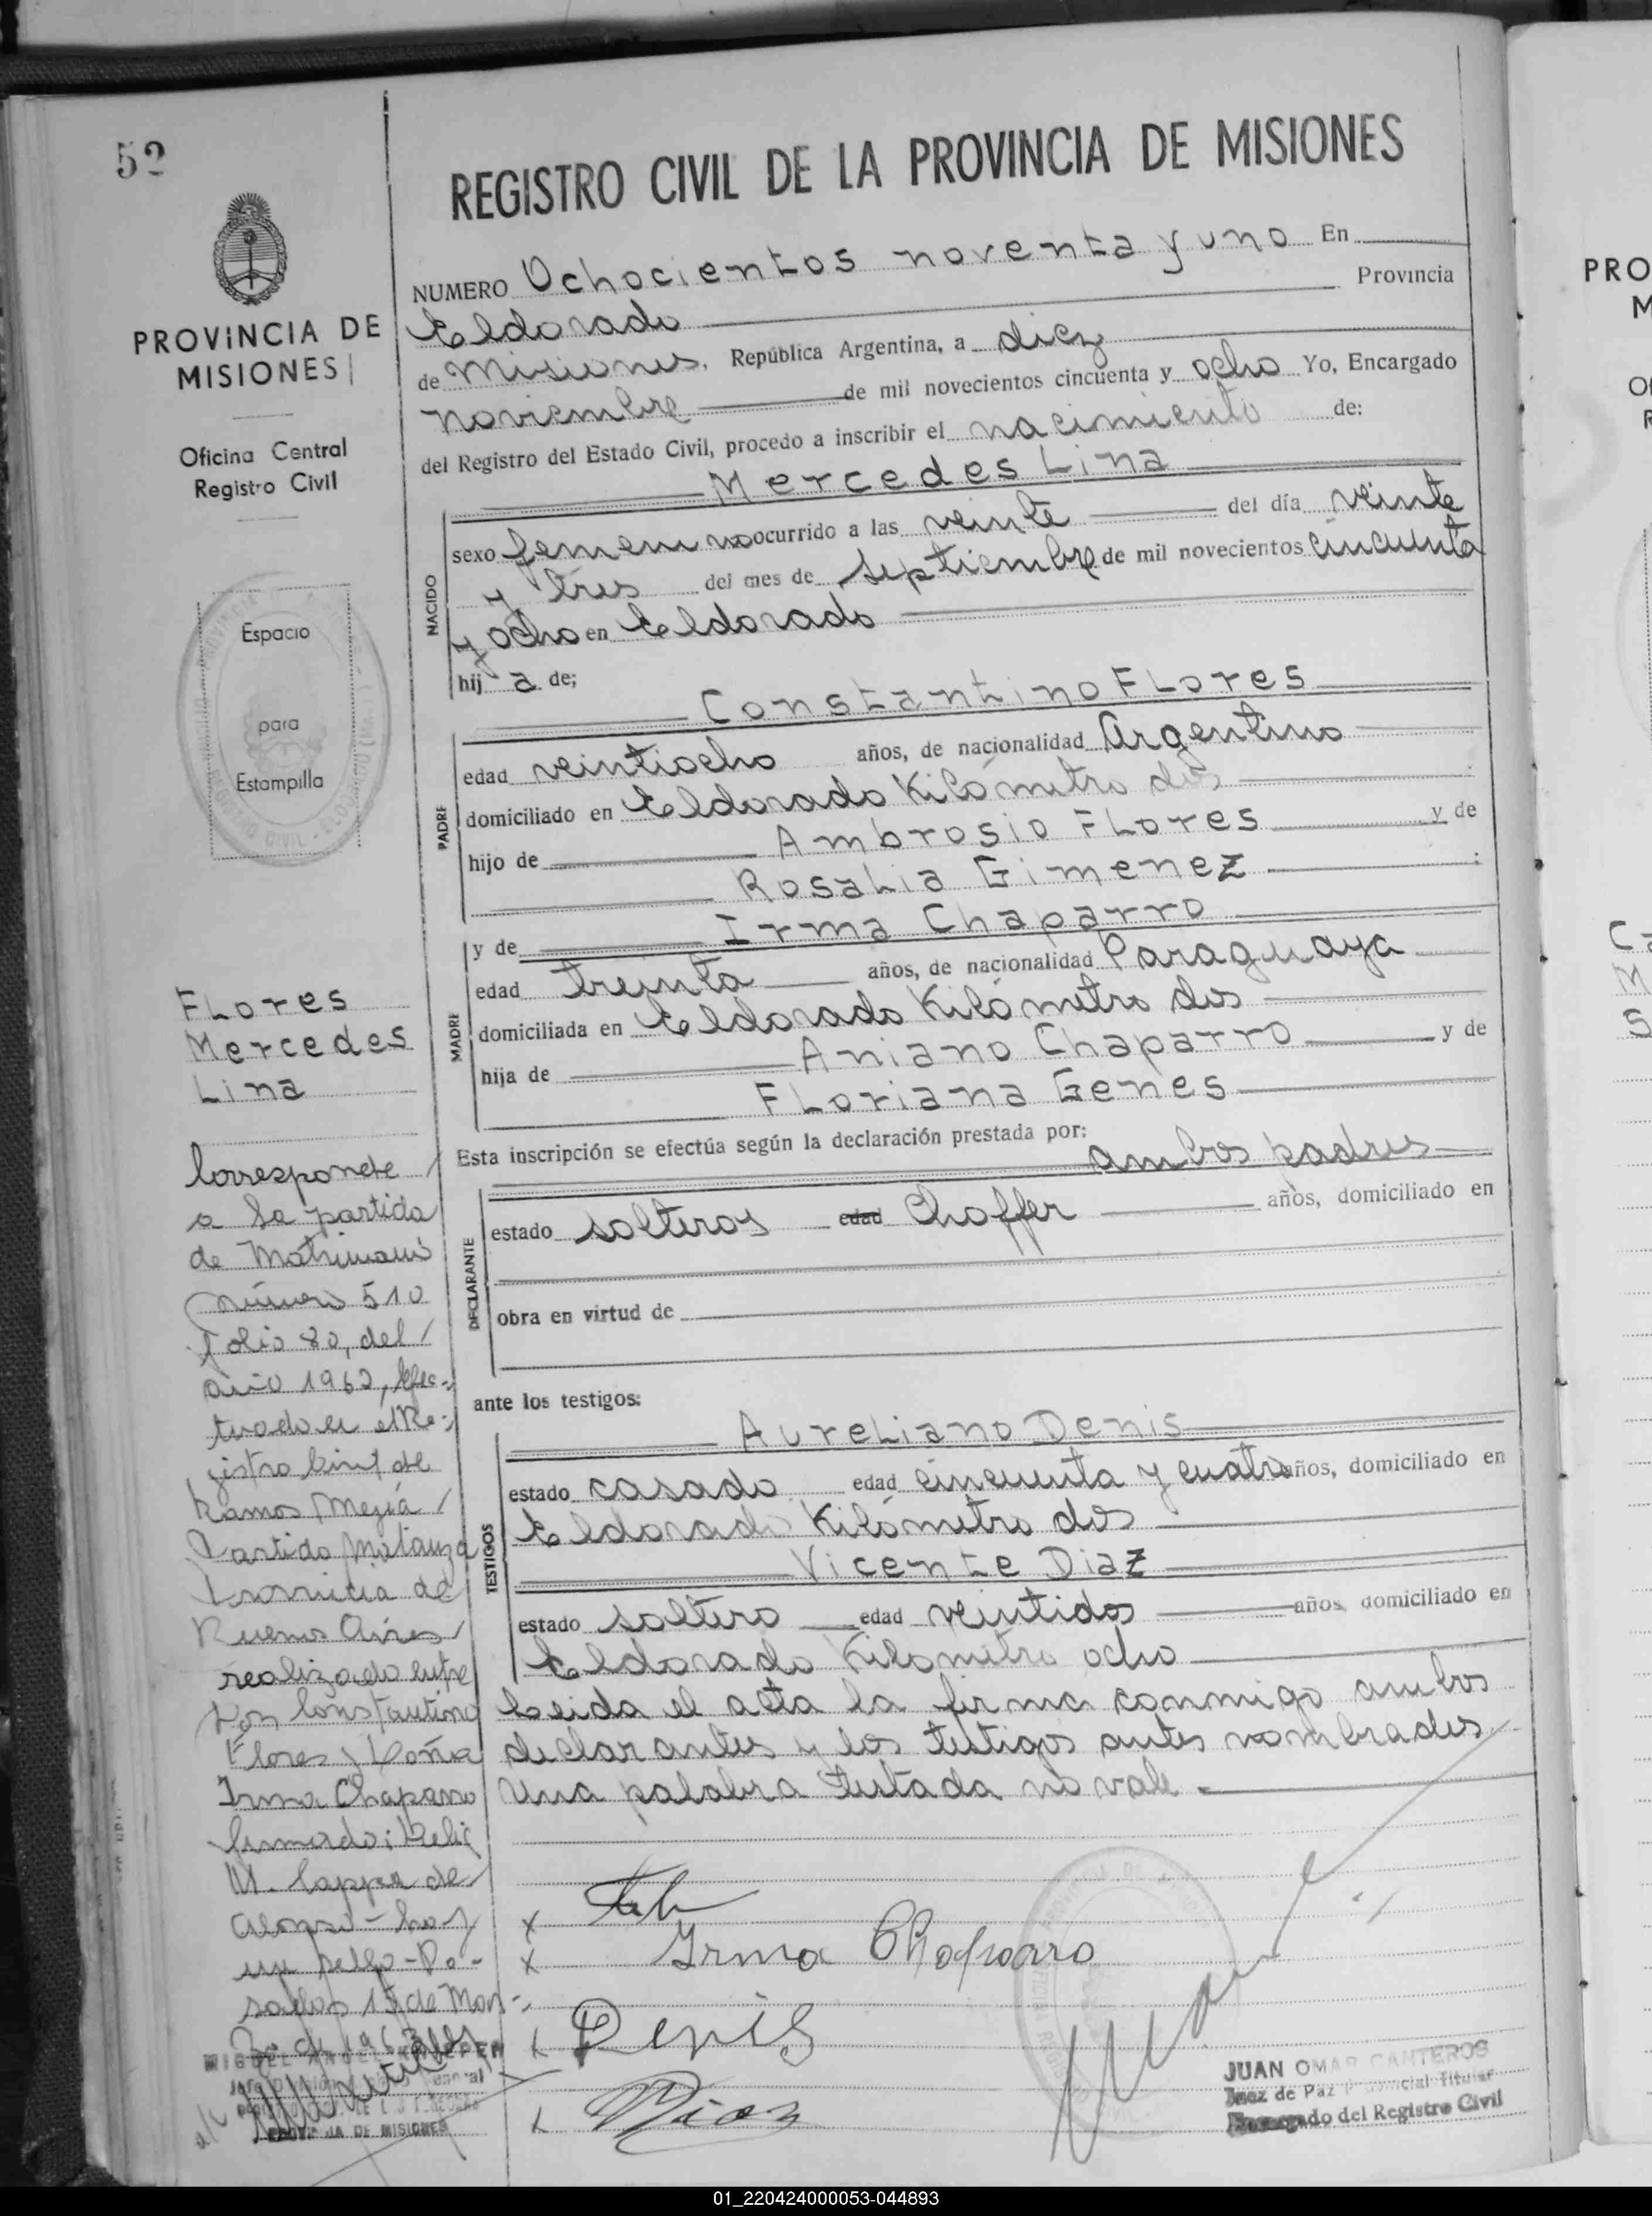 52
PROVINCIA DE
MISIONES
Oficina Central
Registro Civil
Espacio
para
Estampilla
FLores
Mercedes
Lina
Corresponde
a la partida
de Matrimonio
número 510
folio 80, del
año 1962, efec-
tuado en el Re-
gistro Civil de
Ramos Mejía
Partido Matanza
Provincia de
Buenos Aires
realizado entre
Don Constantino
Flores y Doña
Irma Chaparro
firmado:
M. de
hay
un sello - Po-
sadas 15 de Mar-
REGISTRO CIVIL DE LA PROVINCIA DE MISIONES
NUMERO Ochocientos noventa y uno En
Eldorado Provincia
de Misiones, República Argentina, a diez
noviembre de mil novecientos cincuenta y ocho Yo, Encargado
del Registro del Estado Civil, procedo a inscribir el nacimiento de:
Mercedes Lina
NACIDO
sexo femenino ocurrido a las veinte del día veinte
y tres del mes de septiembre de mil novecientos cincuenta
y ocho en Eldorado
hij a de;
Constantino FLores
PADRE
edad veintiocho años, de nacionalidad Argentino
domiciliado en Eldorado Kilómetro dos
hijo de Ambrosio FLores y de
RosaLia Gimenez
y de Irma Chaparro
MADRE
edad treinta años, de nacionalidad Paraguaya
domiciliada en Eldorado Kilómetro dos
hija de Aniano Chaparro y de
FLoriana Genes
Esta inscripción se efectúa según la declaración prestada por:
ambos padres
DECLARANTE
estado solteros edad Choffer años, domiciliado en
obra en virtud de
ante los testigos:
AureLiano Denis
TESTIGOS
estado casado edad cincuenta y cuatro años, domiciliado en
Eldorado Kilómetro dos
Vicente Diaz
estado soltero edad veintidos años, domiciliado en
Eldorado Kilometro ocho
Leida el acta la firma conmigo ambos
declarantes y los testigos antes nombrados
Una palabra testada no vale.
x
x Irma Chaparro
x Denis
x Diaz
JUAN OMAR CANTEROS
Juez de Paz Provincial Titular
Encargado del Registro Civil
PROVINCIA DE MISIONES
PRO
M
01_220424000053-044893